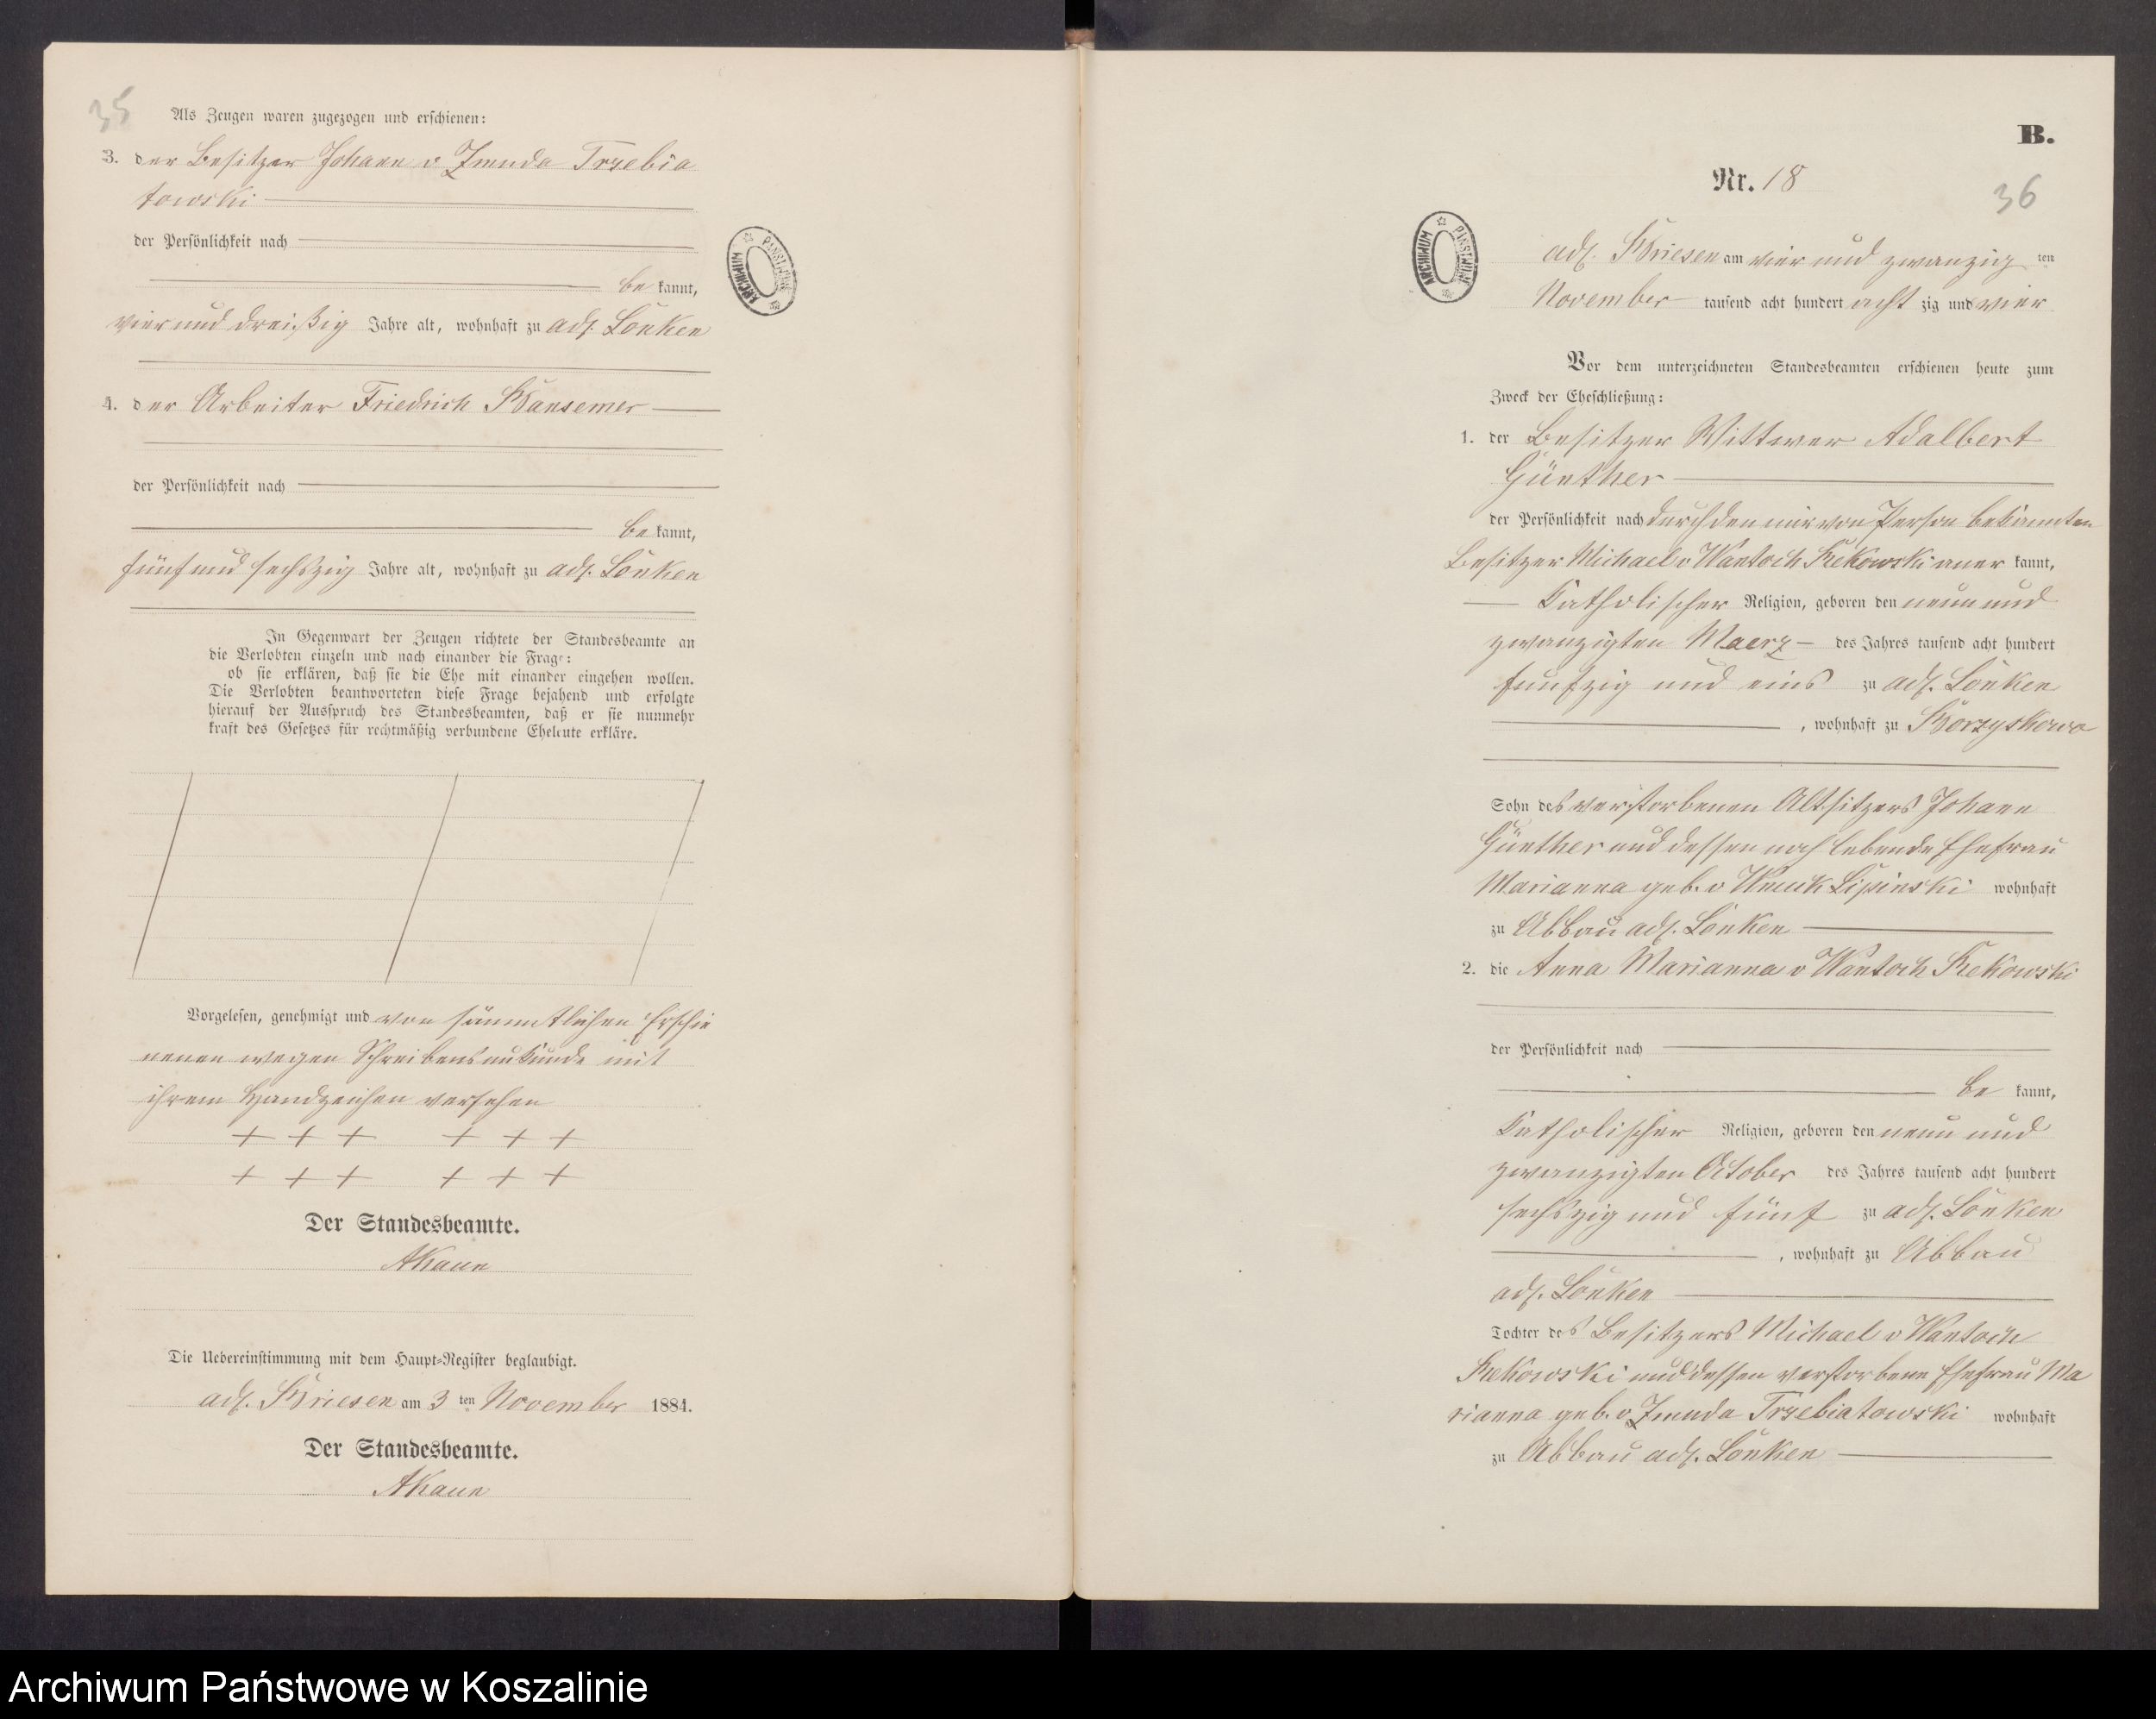 35
Als Zeugen waren zugezogen und erschienen:
3. der Besitzer Johann v Zmuda Trzebia
towski
der Persönlichkeit nach
be kannt,
vier und dreißig Jahre alt, wohnhaft zu adl. Lonken
4. der Arbeiter Friedrich Bansemer
der Persönlichkeit nach
be kannt,
fünf und sechszig Jahre alt, wohnhaft zu adl. Lonken
In Gegenwart der Zeugen richtete der Standesbeamte an
die Verlobten einzeln und nach einander die Frage:
ob sie erklären, daß sie die Ehe mit einander eingehen wollen.
Die Verlobten beantworteten diese Frage bejahend und erfolgte
hierauf der Ausspruch des Standesbeamten, daß er sie nunmehr
kraft des Gesetzes für rechtmäßig verbundene Eheleute erkläre.
Vorgelesen, genehmigt und von sämmtlichen Erschie
nenen wegen Schreibensunkunde mit
ihrem Handzeichen versehen
+ + + + + +
+ + + + + +
Der Standesbeamte.
AKaun
Die Uebereinstimmung mit dem Haupt-Register beglaubigt.
adl. Briesen am 3 ten November 1884.
Der Standesbeamte.
AKaun
ARCHIWUM PAŃSTWOWE
B.
Nr. 18
36
ARCHIWUM PAŃSTWOWE
adl. Briesen am vier und zwanzig ten
November tausend acht hundert acht zig und vier
Vor dem unterzeichneten Standesbeamten erschienen heute zum
Zweck der Eheschließung:
1. der Besitzer Wittwer Adalbert
Günther
der Persönlichkeit nach durch den mir von Person bekannten
Besitzer Michael v Wantoch Rekowski aner kannt,
Katholischer Religion, geboren den neun und
zwanzigten Maerz des Jahres tausend acht hundert
funfzig und eins zu adl. Lonken
, wohnhaft zu Borzyskowo
Sohn des verstorbenen Altsitzers Johann
Günther und dessen noch lebende Ehefrau
Marianna geb. v Wnuk Lipinski wohnhaft
zu Abbau adl. Lonken
2. die Anna Marianna v Wantoch Rekowski
der Persönlichkeit nach
be kannt,
Katholischer Religion, geboren den neun und
zwanzigten October des Jahres tausend acht hundert
sechszig und fünf zu adl. Lonken
, wohnhaft zu Abbau
adl. Lonken
Tochter des Besitzers Michael v Wantoch
Rekowski und dessen verstorbene Ehefrau Ma
rianna geb. v Zmuda Trzebiatowski wohnhaft
zu Abbau adl. Lonken
Archiwum Państwowe w Koszalinie